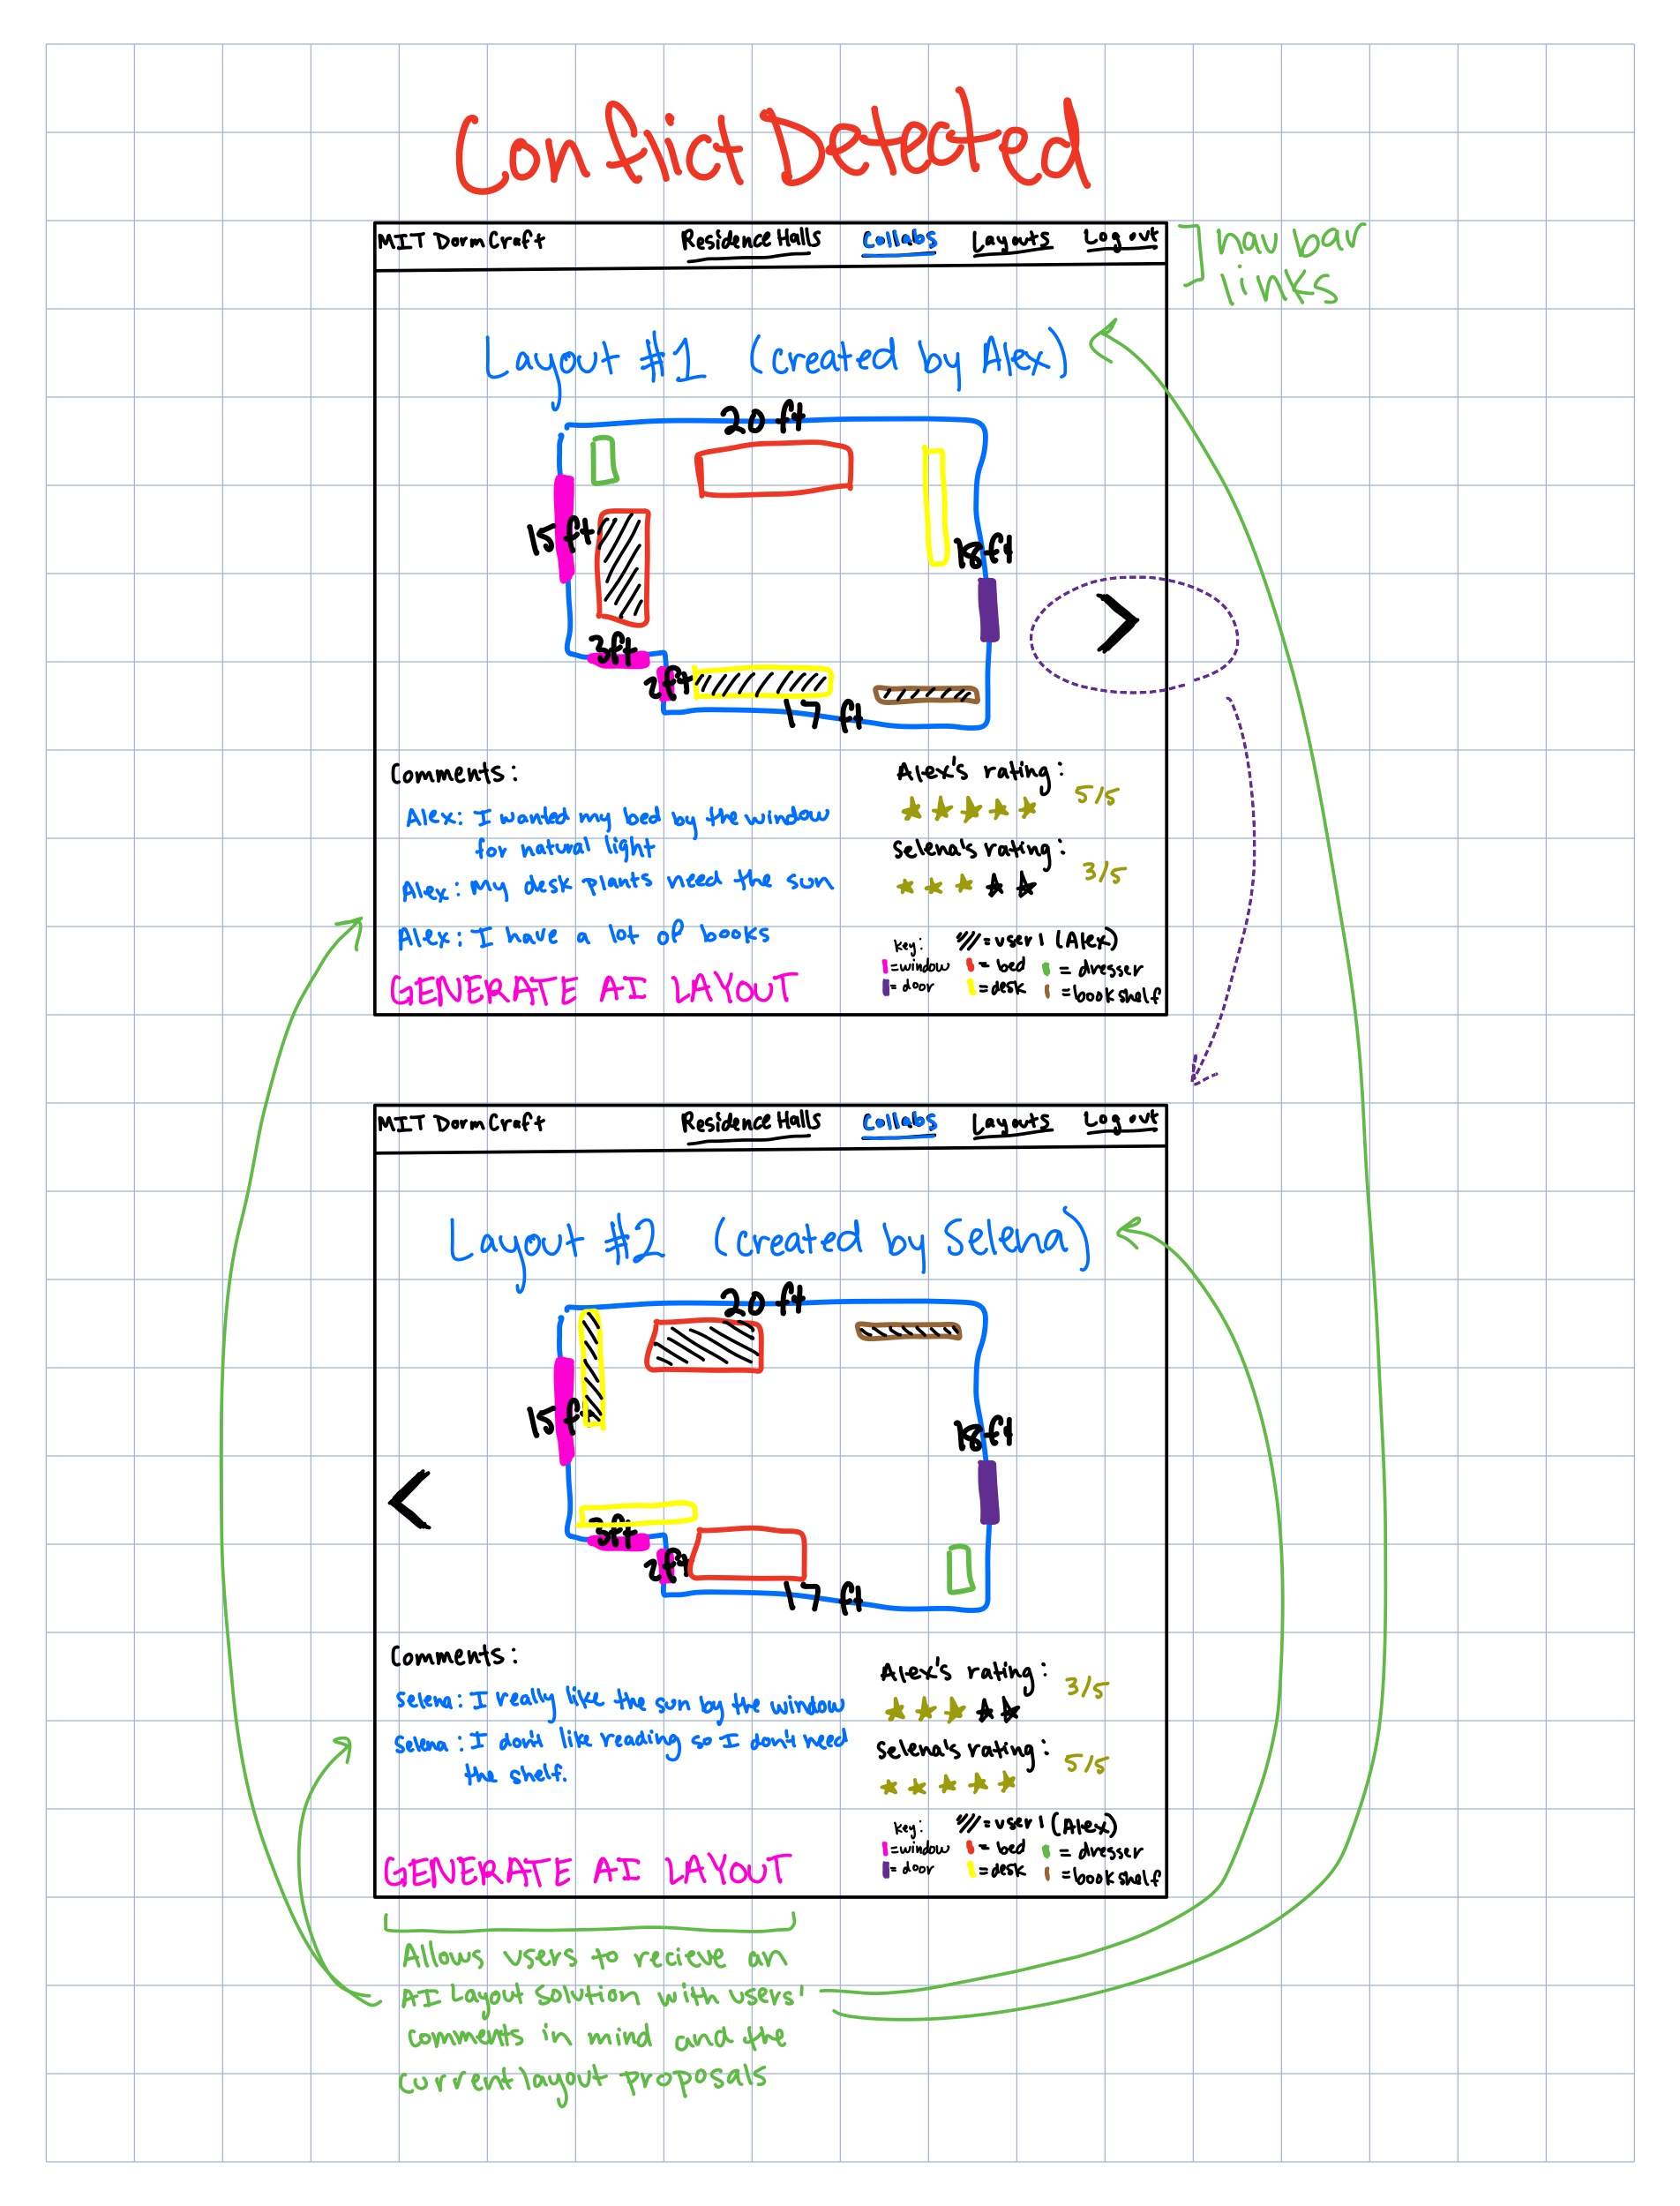 Conflict Detected
MIT DormCraft Residence Halls Collabs Layouts Log out
nav bar
links
Layout #1 (created by Alex)
20 ft
15 ft
18 ft
3ft
2ft
17 ft
>
Comments:
Alex: I wanted my bed by the window
for natural light
Alex: My desk plants need the sun
Alex: I have a lot of books
GENERATE AI LAYOUT
Alex's rating:
5/5
Selena's rating:
3/5
key: = user 1 (Alex)
=window = bed = dresser
= door =desk =bookshelf
MIT DormCraft Residence Halls Collabs Layouts Log out
Layout #2 (created by Selena)
20 ft
15 ft
18 ft
3ft
2ft
17 ft
<
Comments:
Selena: I really like the sun by the window
Selena: I don't like reading so I don't need
the shelf.
GENERATE AI LAYOUT
Alex's rating:
3/5
Selena's rating:
5/5
key: = user 1 (Alex)
=window = bed = dresser
= door =desk =bookshelf
Allows users to recieve an
AI Layout solution with users'
comments in mind and the
current layout proposals